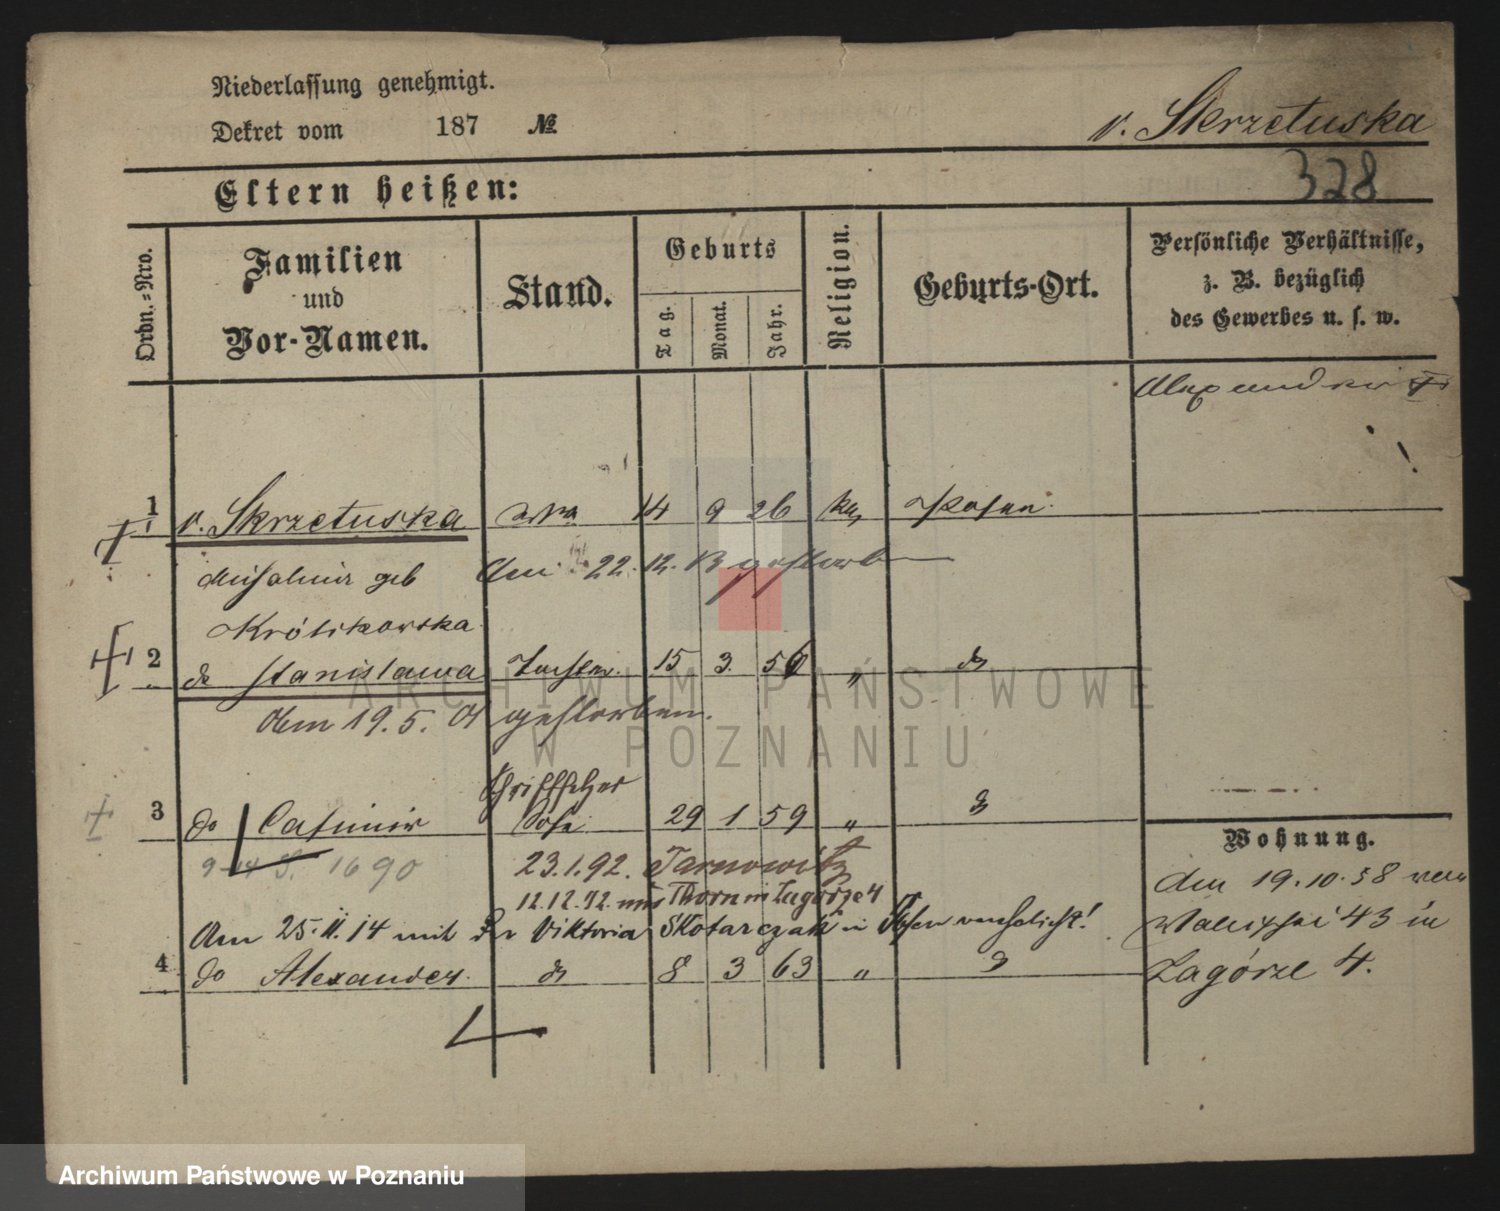 Niederlassung genehmigt.
Dekret vom 187 №
v. Skrzetuska
328
Eltern heißen:
Ordn.-Nro.
Familien und Vor-Namen.
Stand.
Geburts
Tag.
Monat.
Jahr.
Religion.
Geburts-Ort.
Persönliche Verhältnisse, z. B. bezüglich des Gewerbes u. s. w.
1 v. Skrzetuska Wwe 14 9 26 Posen
geb
Am 22. 12. 13 gestorben
Królikowska
2 do Stanislawa Tochter 15 3. 56 " do
Am 19. 5. 01 gestorben.
Schriftsetzer
3 do Casimir Sohn 29 1 59 " do
1690 23.1.92. Tarnowitz
Thorn in Zagórze 4
Am 25. II. 14 mit der Viktoria Skotarczak in Posen verehelicht!
4 do Alexander do 8 3 63 " do
Wohnung.
Am 19.10.58 von
Wallischei 43 in
Zagórze 4.
ARCHIWUM PAŃSTWOWE
W POZNANIU
Archiwum Państwowe w Poznaniu